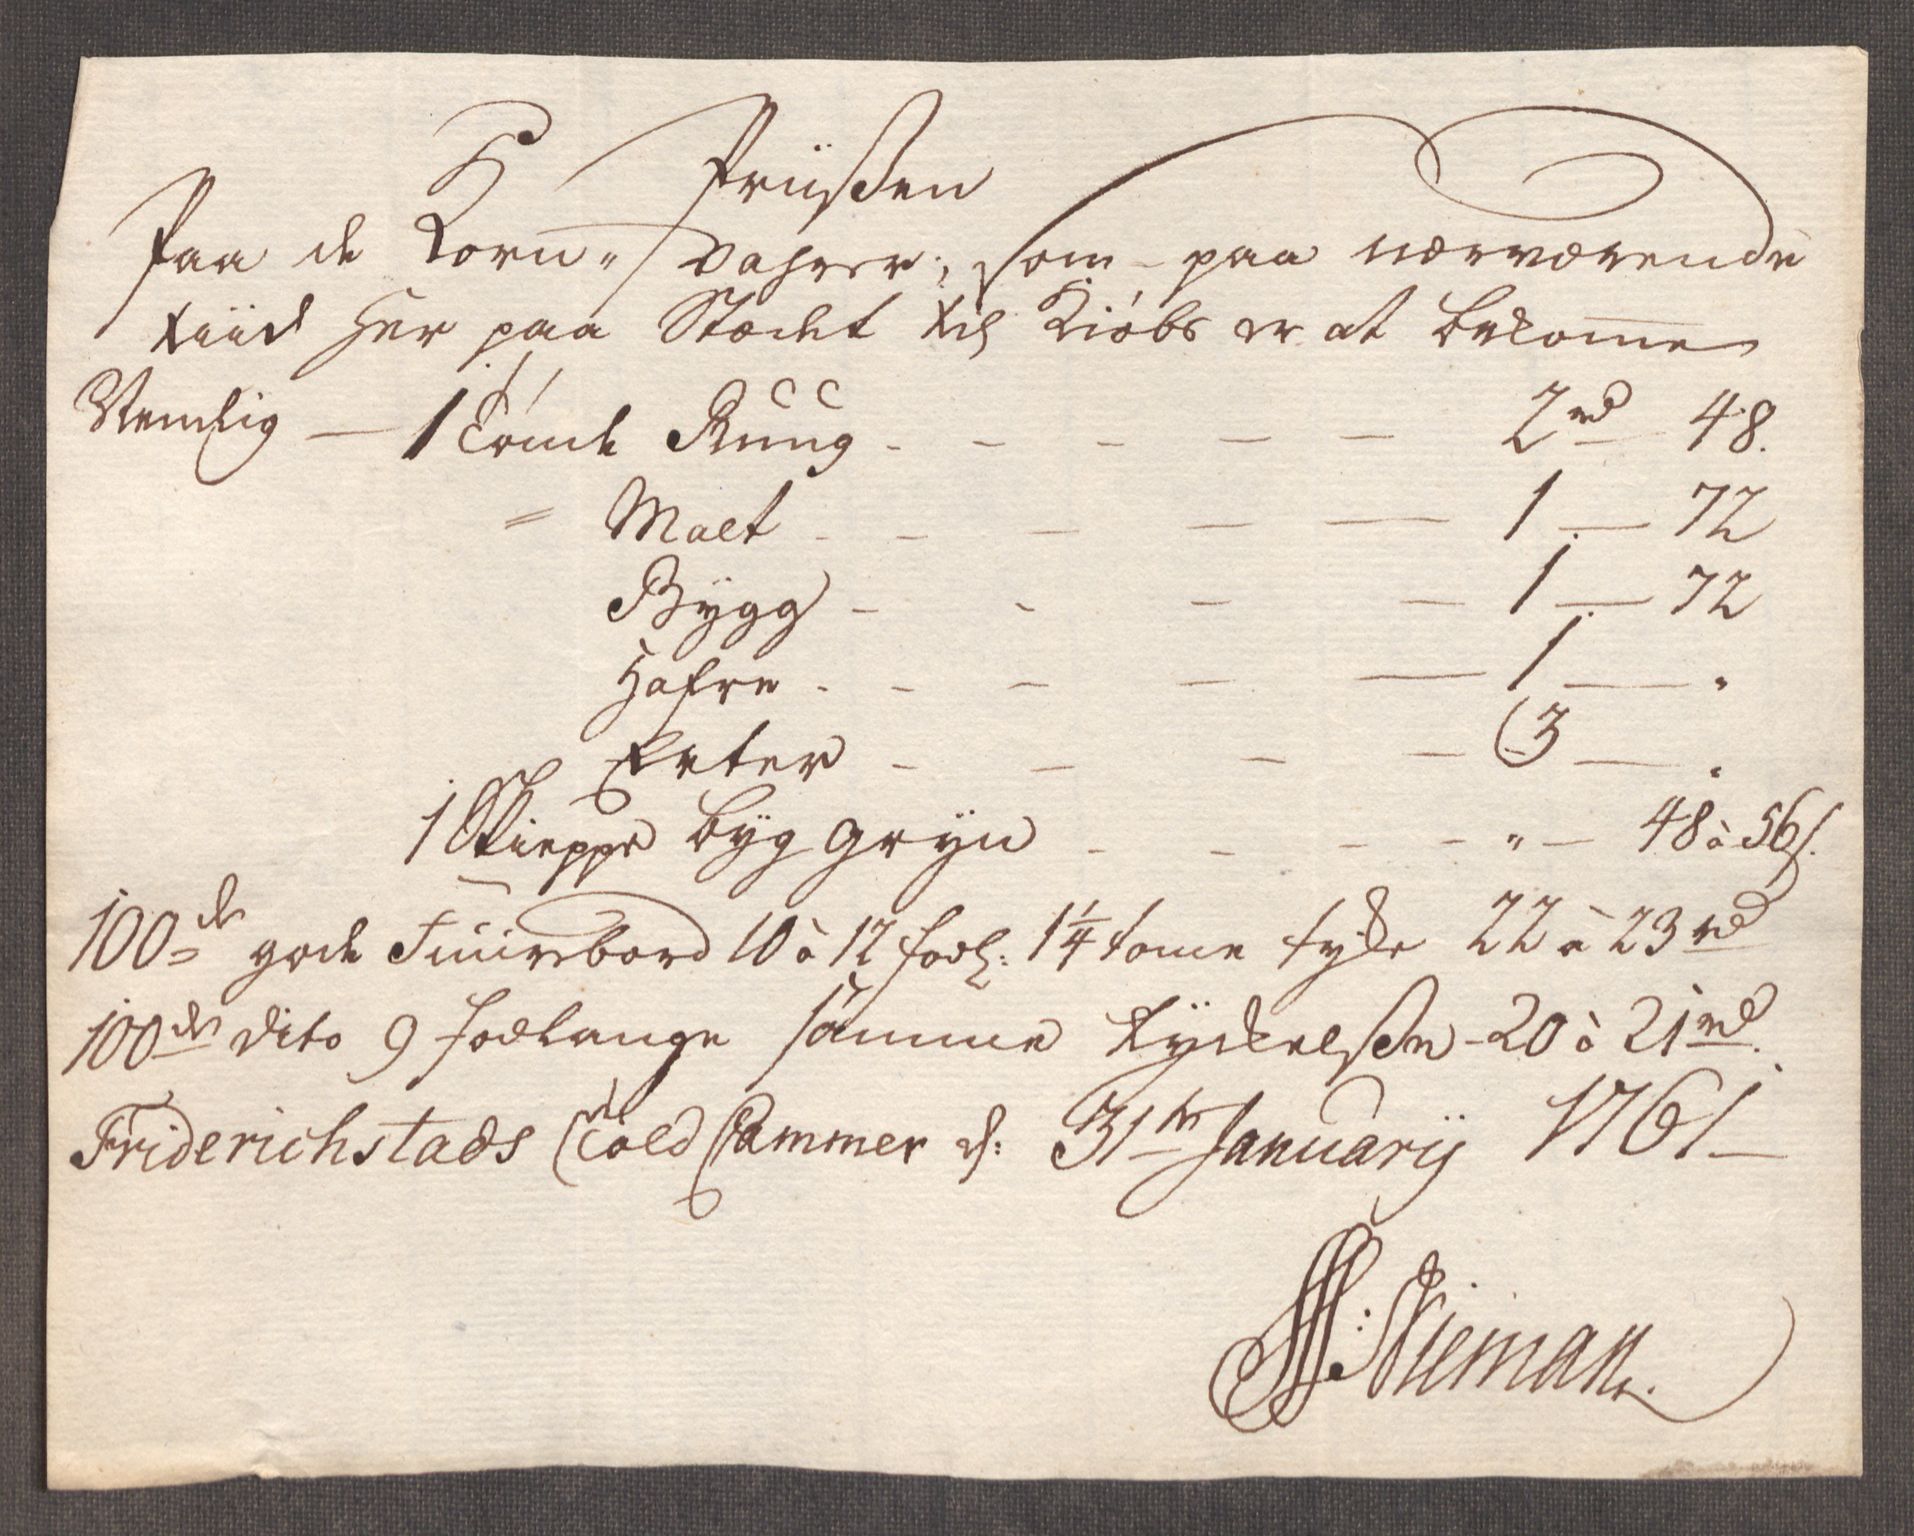 Priisen
Paa de Korn„ Vahrer, som paa nærværende
tiid her paa Stædet til Kiöbs er at bekomme
Nemlig — 1 Tönde Ruug - - - - - 2 rd 48.
= Malt - - - - - 1 — 72
Bygg - - - - 1 — 72
Hafre - - - - - 1 — „
Erter - - - - 3 — „
1 Skieppe byg gryn - - - - „ — 48 à 56 s.
100de gode Fuurebord 10 à 12 fod l: 1¼ tome tyke 22 à 23 rd
100de dito 9 fodlange samme tyckelse - 20 à 21 rd.
Friderichstads Told Cammer d: 31te Januarij 1761 —
Nieman